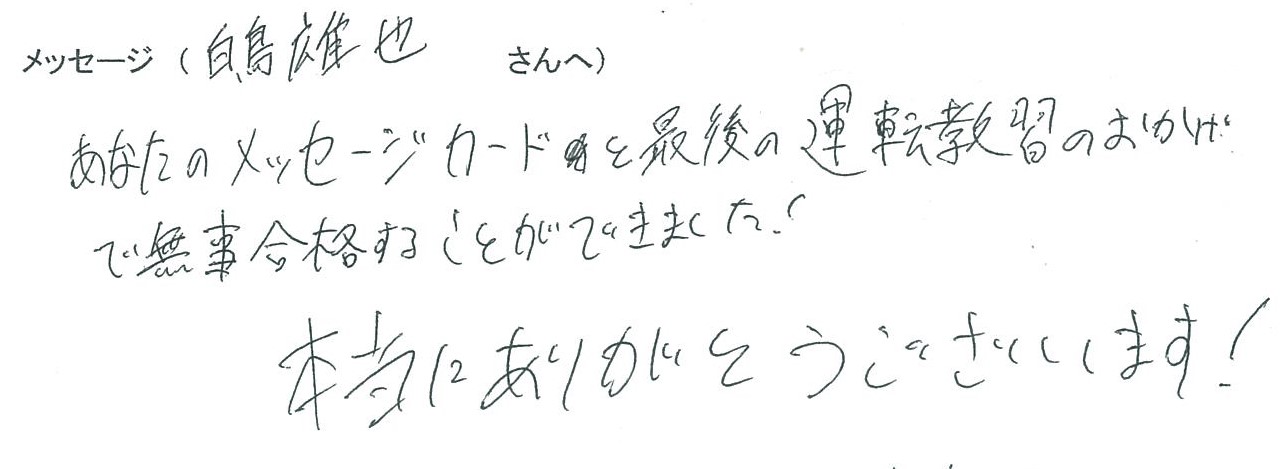 メッセージ（白鳥雄也 さんへ）
あなたのメッセージカードと最後の運転教習のおかげ
で無事合格することができました!
本当にありがとうございます!